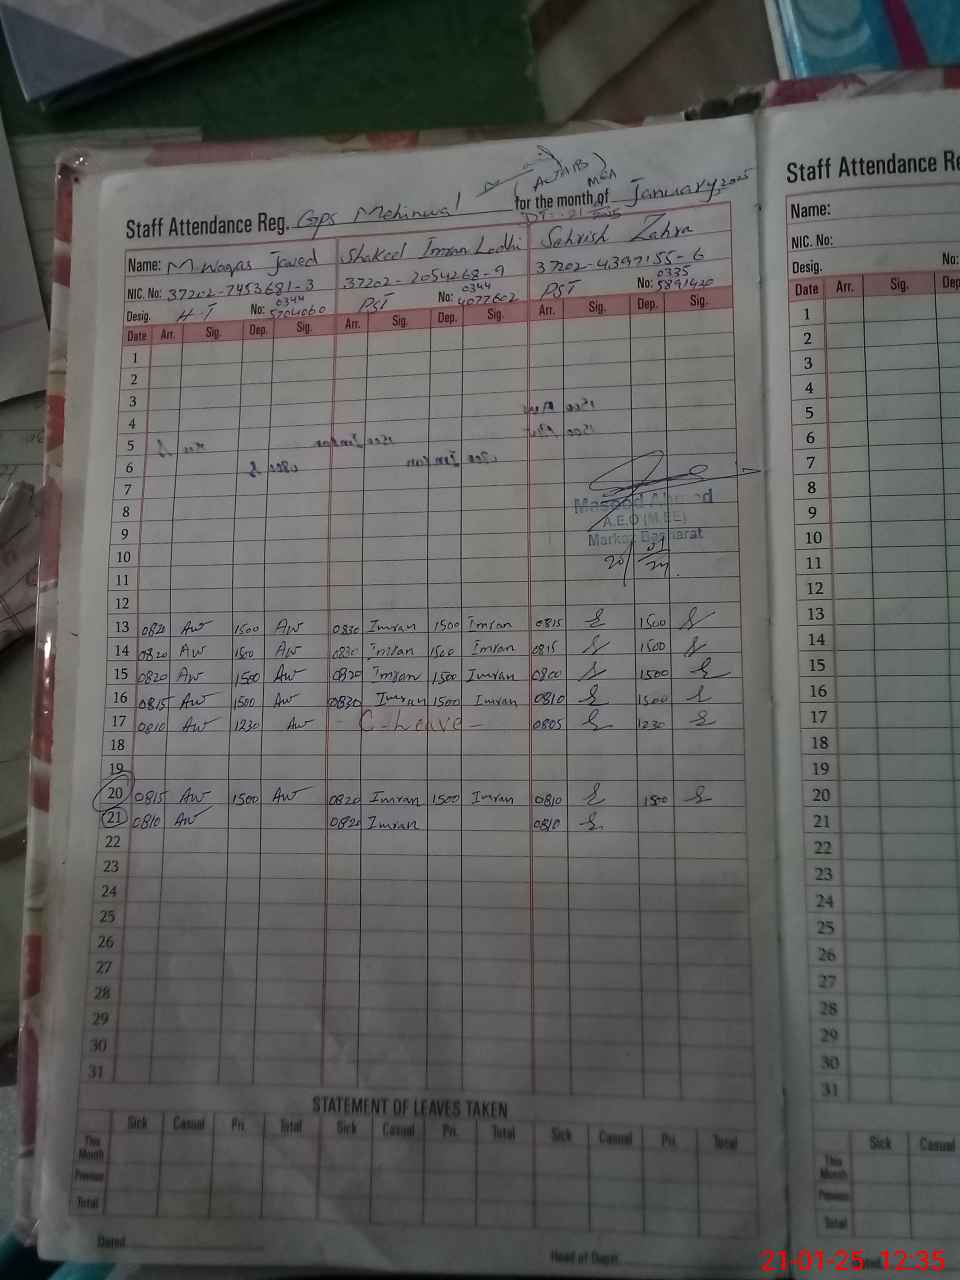 (ACTIVIS)
MEA
Staff Attendance Reg. GPS Mehinwal for the month of January, 2025
DT:- 21
2025
Name: M Waqas Javed Shakeel Imran Lodhi Sahrish Zahra
NIC. No: 37202-7453681-3 37202-2054268-9 37202-4397155-6
Desig. H.T No: 0344 5704060 PST No: 0344 4077602 PST No: 0335 5891420
Date Arr. Sig. Dep. Sig. Arr. Sig. Dep. Sig. Arr. Sig. Dep. Sig.
1
2
3
4
5
6
7
8
Masood Ahmed
9
A.E.O (M.EE)
10
Markaz Basharat
20/01/25
11
12
13 0820 AW 1500 AW 0830 Imran 1500 Imran 0815 1500
14 0820 AW 1500 AW 0830 Imran 1500 Imran 0815 1500
15 0820 AW 1500 AW 0820 Imran 1500 Imran 0800 1500
16 0815 AW 1500 AW 0820 Imran 1500 Imran 0810 1500
17 0810 AW 1230 AW - C-Leave - 0805 1230
18
19
20 0815 AW 1500 AW 0820 Imran 1500 Imran 0810 1500
21 0810 AW 0820 Imran 0810
22
23
24
25
26
27
28
29
30
31
STATEMENT OF LEAVES TAKEN
Sick Casual Pri. Total Sick Casual Pri. Total Sick Casual Pri. Total
This Month
Previous
Total
Dated
Head of Deptt.
Staff Attendance Re
Name:
NIC. No:
Desig. No:
Date Arr. Sig. Dep
1
2
3
4
5
6
7
8
9
10
11
12
13
14
15
16
17
18
19
20
21
22
23
24
25
26
27
28
29
30
31
Sick Casual
This Month
Previous
Total
Dated
21-01-25 12:35